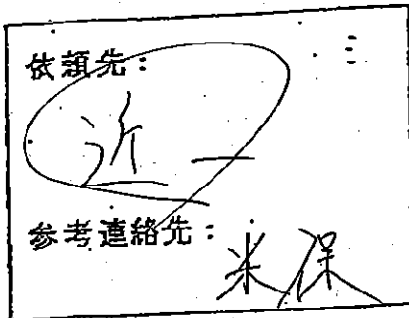 依頼先:
近一
参考連絡先:
米保